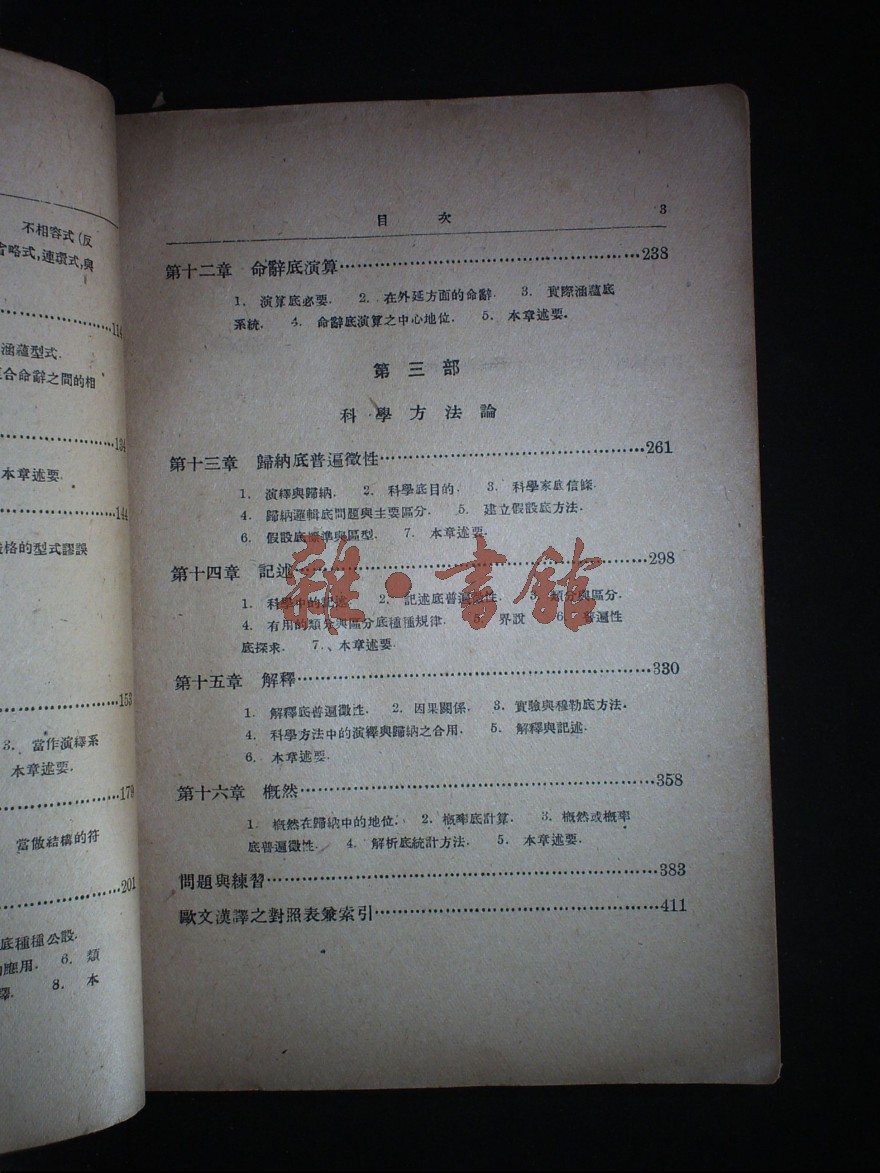 不相容式(反
省略式,連環式,與
114
涵蘊型式.
合命辭之間的相
134
本章述要.
144
格的型式謬誤
153
3. 當作演繹系
本章述要.
179
當做結構的符
201
底種種公設.
應用. 6. 類
8. 本
目 次 3
第十二章 命辭底演算……238
1. 演算底必要. 2. 在外延方面的命辭. 3. 實際涵蘊底
系統. 4. 命辭底演算之中心地位. 5. 本章述要.
第三部
科學方法論
第十三章 歸納底普遍徵性……261
1. 演繹與歸納. 2. 科學底目的. 3. 科學家底信條.
4. 歸納邏輯底問題與主要區分. 5. 建立假設底方法.
6. 假設底標準與區型. 7. 本章述要.
第十四章 記述……298
1. 科學中的記述. 2. 記述底普遍徵性. 3. 類分與區分.
4. 有用的類分與區分底種種規律. 5. 界說. 6. 普遍性
底探求. 7. 本章述要.
第十五章 解釋……330
1. 解釋底普遍徵性. 2. 因果關係. 3. 實驗與穆勒底方法.
4. 科學方法中的演繹與歸納之合用. 5. 解釋與記述.
6. 本章述要.
第十六章 概然……358
1. 概然在歸納中的地位. 2. 概率底計算. 3. 概然或概率
底普遍徵性. 4. 解析底統計方法. 5. 本章述要.
問題與練習……383
歐文漢譯之對照表兼索引……411
雜·書館